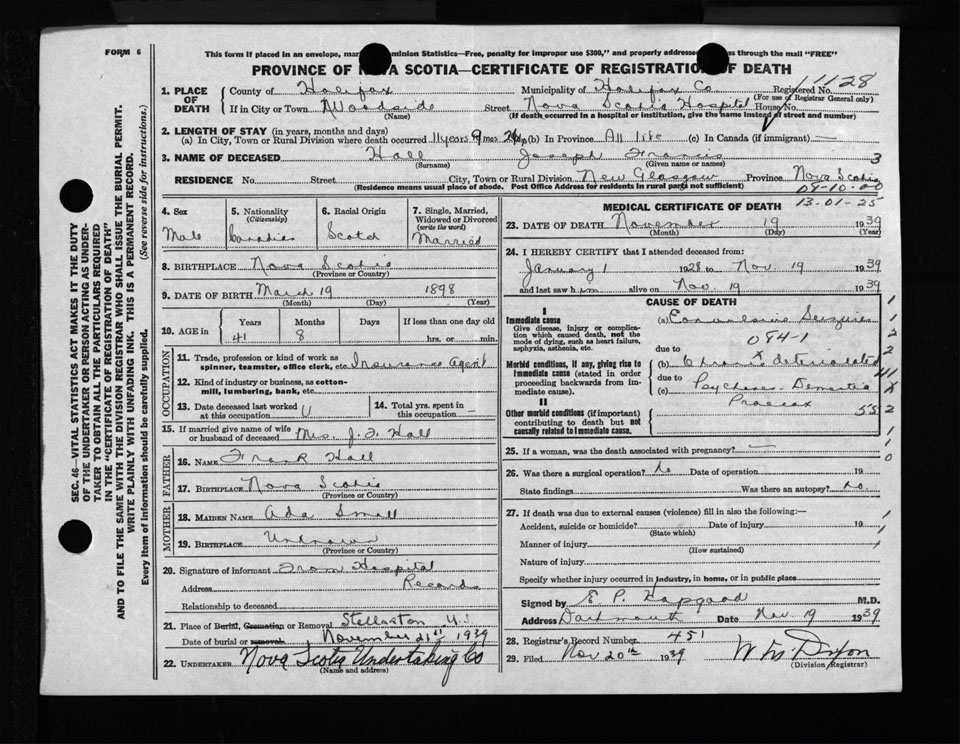 FORM 6
This form if placed in an envelope, mar minion Statistics—Free, penalty for improper use $300," and properly addresse ss through the mail "FREE"
PROVINCE OF VA SCOTIA—CERTIFICATE OF REGISTRATION OF DEATH
SEC. 46—VITAL STATISTICS ACT MAKES IT THE DUTY
OF THE UNDERTAKER OR PERSON ACTING AS UNDER-
TAKER TO OBTAIN ALL THE PARTICULARS REQUIRED
IN THE "CERTIFICATE OF REGISTRATION OF DEATH"
AND TO FILE THE SAME WITH THE DIVISION REGISTRAR WHO SHALL ISSUE THE BURIAL PERMIT.
WRITE PLAINLY WITH UNFADING INK. THIS IS A PERMANENT RECORD.
Every item of information should be carefully supplied. (See reverse side for instructions.)
1. PLACE OF DEATH County of Halifax Municipality of Halifax Co Registered No. 11128
(For use of Registrar General only)
If in City or Town Woodside Street Nova Scotia Hospital House No.
(Name) (If death occurred in a hospital or institution, give the name instead of street and number)
2. LENGTH OF STAY (in years, months and days)
(a) In City, Town or Rural Division where death occurred 11 years 9 mos (b) In Province All life (c) In Canada (if immigrant)
3. NAME OF DECEASED Hall Joseph Francis 3
(Surname) (Given name or names)
RESIDENCE No. Street City, Town or Rural Division New Glasgow Province Nova Scotia
(Residence means usual place of abode. Post Office Address for residents in rural parts not sufficient)
09-10-00
13-01-25
4. Sex Male
5. Nationality (Citizenship) Canadian
6. Racial Origin Scotch
7. Single, Married, Widowed or Divorced (write the word) Married
8. BIRTHPLACE Nova Scotia
(Province or Country)
9. DATE OF BIRTH March 19 1898
(Month) (Day) (Year)
10. AGE in Years Months Days If less than one day old
41 8 hrs. or min.
OCCUPATION
11. Trade, profession or kind of work as spinner, teamster, office clerk, etc. Insurance Agent
12. Kind of industry or business, as cotton-mill, lumbering, bank, etc.
13. Date deceased last worked at this occupation U
14. Total yrs. spent in this occupation —
15. If married give name of wife or husband of deceased Mrs. J. F. Hall
FATHER
16. NAME Frank Hall
17. BIRTHPLACE Nova Scotia
(Province or Country)
MOTHER
18. MAIDEN NAME Ada Small
19. BIRTHPLACE Unknown
(Province or Country)
20. Signature of informant From Hospital
Address Records
Relationship to deceased
21. Place of Burial, Cremation or Removal Stellarton N.S
Date of burial or removal November 21st 1939
22. UNDERTAKER Nova Scotia Undertaking Co
(Name and address)
MEDICAL CERTIFICATE OF DEATH
23. DATE OF DEATH November 19 1939
(Month) (Day) (Year)
24. I HEREBY CERTIFY that I attended deceased from:
January 1 1928 to Nov 19 1939
and last saw him alive on Nov. 19 1939
CAUSE OF DEATH
I
Immediate cause
Give disease, injury or complication which caused death, not the mode of dying, such as heart failure, asphyxia, asthenia, etc.
(a)
084-1
due to
Morbid conditions, if any, giving rise to immediate cause (stated in order proceeding backwards from immediate cause).
(b) Chronic deteriorated
due to
(c) Psychoses - Dementia
Praecox
II
Other morbid conditions (if important) contributing to death but not causally related to immediate cause.
25. If a woman, was the death associated with pregnancy? —
26. Was there a surgical operation? No Date of operation 19
State findings Was there an autopsy? No.
27. If death was due to external causes (violence) fill in also the following:—
Accident, suicide or homicide? Date of injury 19
(State which)
Manner of injury
(How sustained)
Nature of injury
Specify whether injury occurred in industry, in home, or in public place
Signed by E. P. Hapgood M.D.
Address Dartmouth Date Nov 19 1939
28. Registrar's Record Number 451
29. Filed Nov 20th 1939 W Dixon
(Division Registrar)